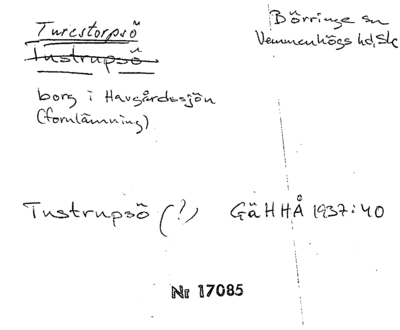 Turestorpsö
Börringe sn
Tustrupsö
Vemmenhögs hd, Sk
borg i Havgårdssjön
(fornlämning)
Tustrupsö (?) GäHHÅ 1937:40
Nr 17085